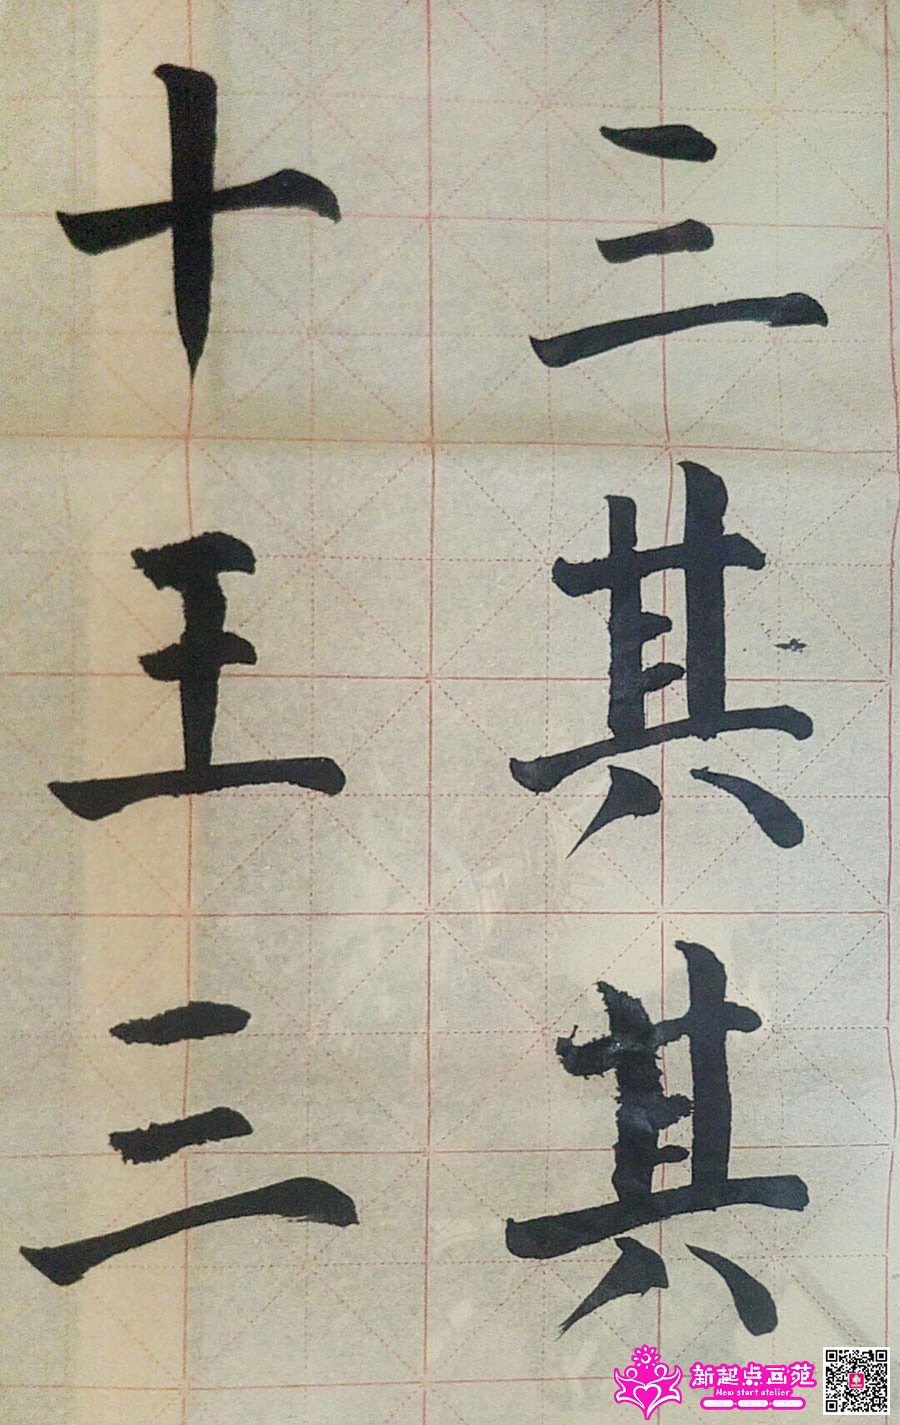 三其其
十王三
新起点画苑
New start atelier